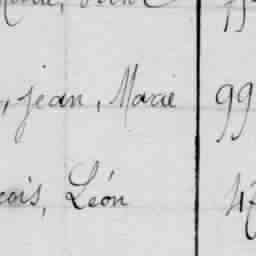 , Jean, Marie 99
cois, Léon 47